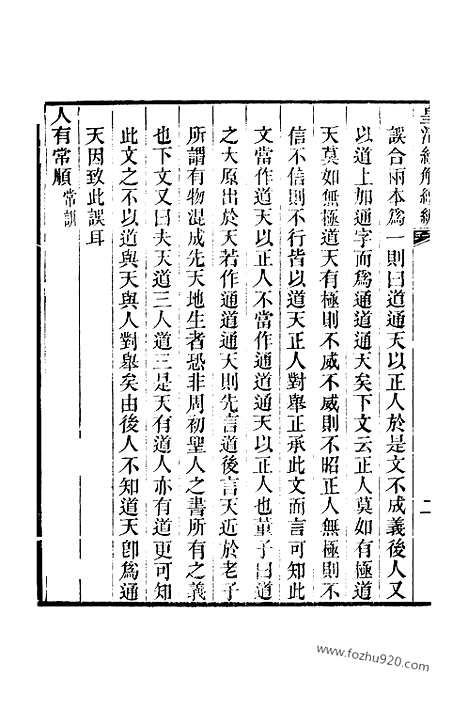 皇清經解續編
二
誤合兩本爲一則曰道通天以正人於是文不成義後人又
以道上加通字而爲通道通天矣下文云正人莫如有極道
天莫如無極道天有極則不威不威則不昭正人無極則不
信不信則不行皆以道天正人對舉正承此文而言可知此
文當作道天以正人不當作通道通天以正人也董子曰道
之大原出於天若作通道通天則先言道後言天近於老子
所謂有物混成先天地生者恐非周初聖人之書所有之義
也下文又曰夫天道三人道三是天有道人亦有道更可知
此文之不以道與天與人對舉矣由後人不知道天卽爲通
天因致此誤耳
人有常順 常訓
www.fozhu920.com